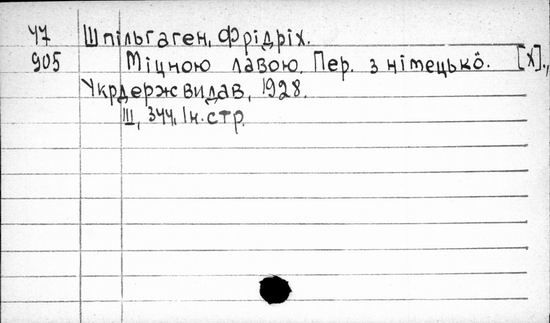 47 Шпільгаген, Фрідріх.
905 Міцною лавою. Пер. з німецькô. [Х].,
Укрдержвидав, 1928.
III, 344, Ін. стр.